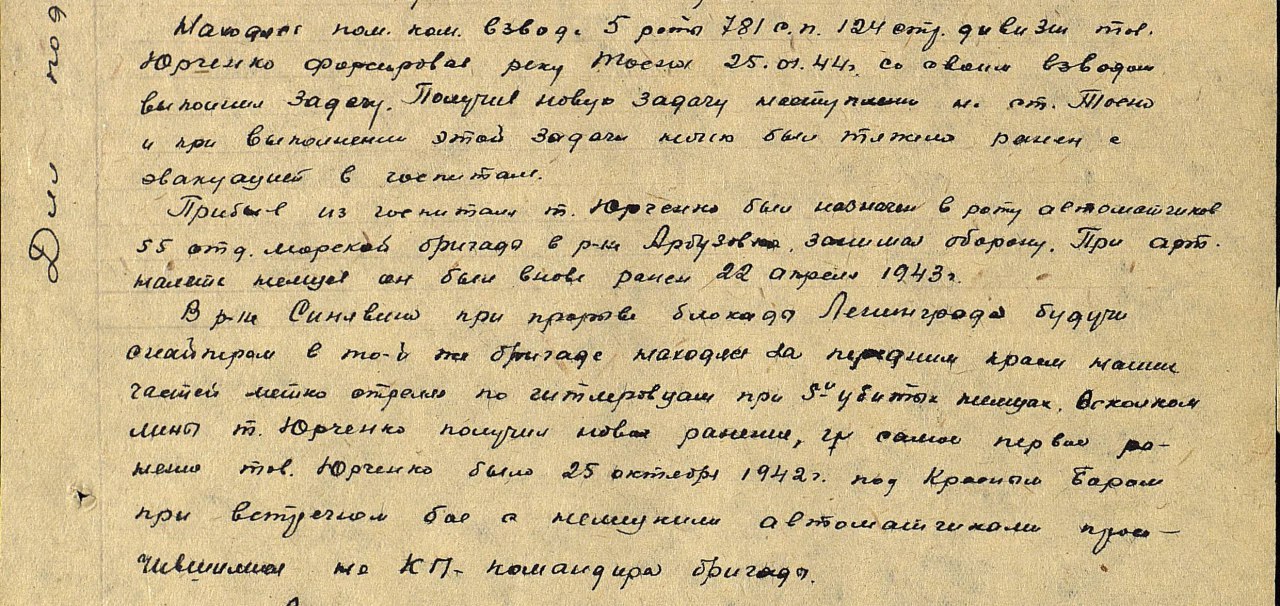 Находясь пом. ком. взвода 5 роты 781 с.п. 124 стр. дивизии тов.
Юрченко форсировав реку Тосна 25.01.44г. со своим взводом
выполнил задачу. Получив новую задачу наступлени на ст. Тосно
и при выполнении этой задачи ночью был тяжело ранен с
эвакуацией в госпиталь.
Прибыв из госпиталя т. Юрченко был назначен в роту автоматчиков
55 отд. морской бригады в р-не Арбузово, занимал оборону. При арт.
налете немцев он был вновь ранен 22 апреля 1943г.
В р-не Синявино при прорыве блокады Ленинграда будучи
снайпером в то-й же бригаде находясь за передним краем наших
частей метко стрелял по гитлеровцам при 5-и убитых немцах. Осколком
мины т. Юрченко получил новое ранение, самое первое ра-
нение тов. Юрченко было 25 октября 1942г. под Красным Бором
при встречном бое с немецкими автоматчиками просо-
чившимися на КП- командира бригады.
Дил под